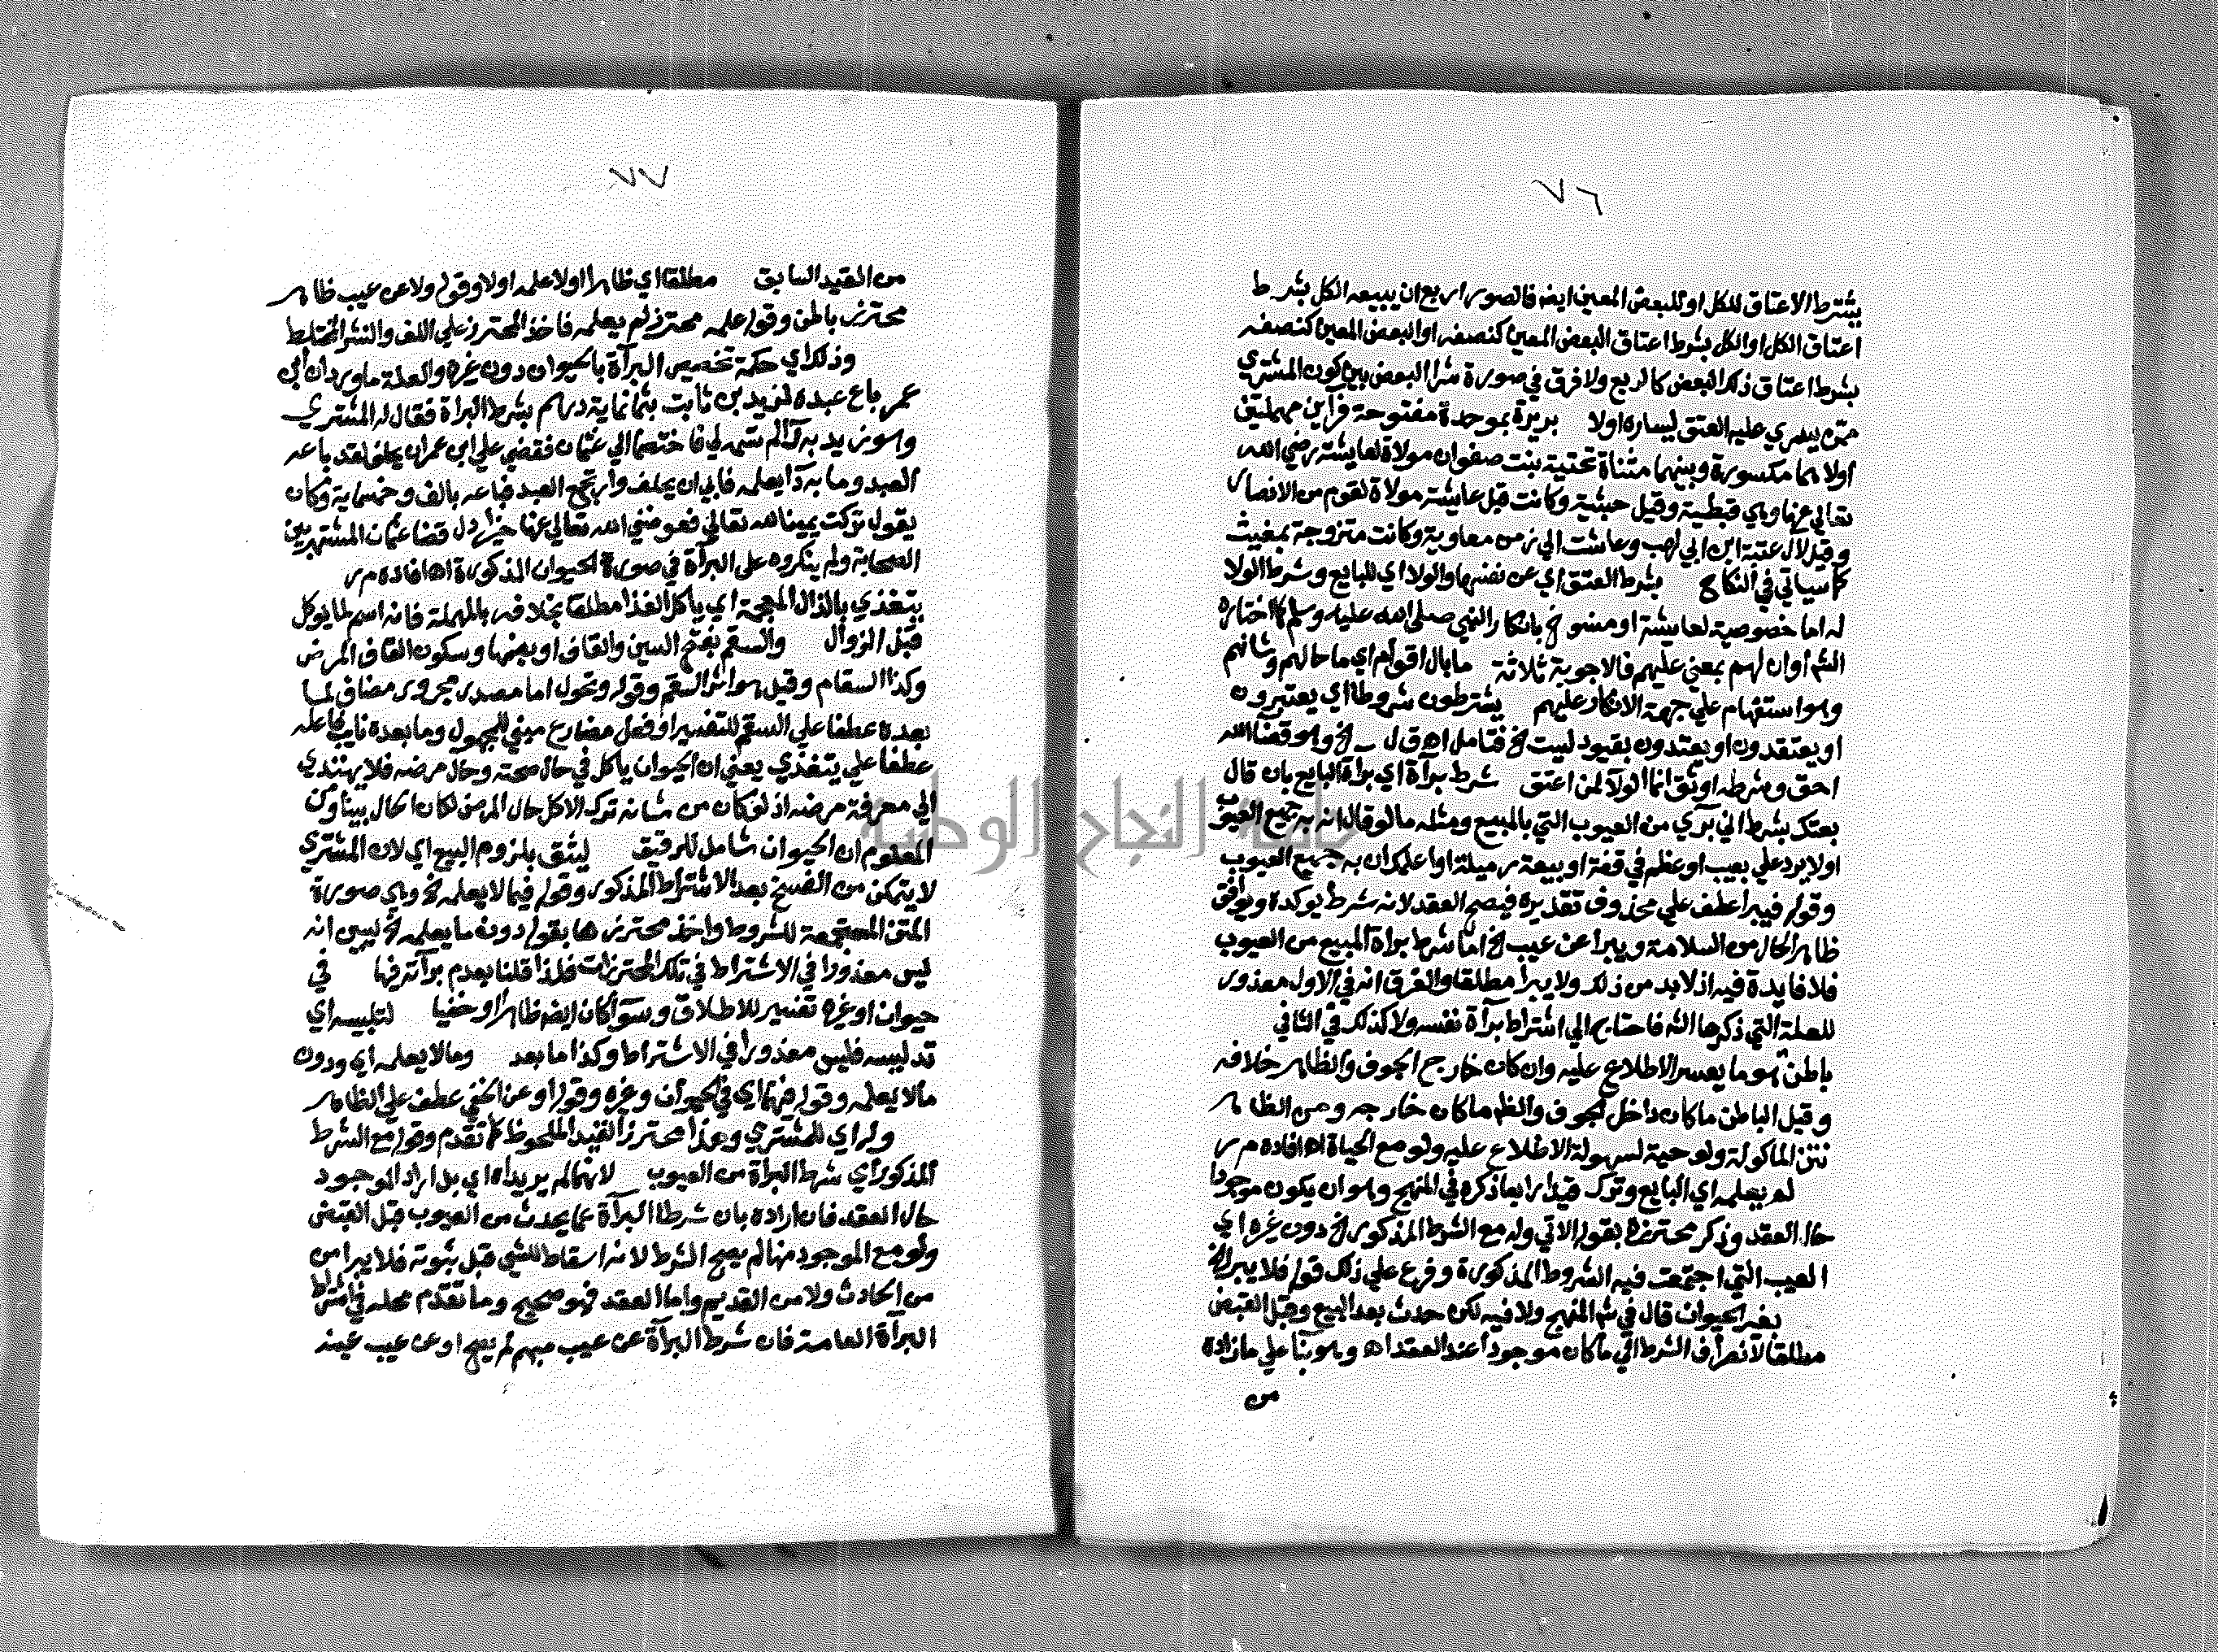 ٧٦
بشترط الاعتاق للكل او للبعض المعين ايضا فالصور اربع ان يبيعه الكل بشرط
اعتاق الكل او الكل بشرط اعتاق البعض المعين كنصفه او البعض المعين كنصفه
بشرط اعتاق ذلك البعض كالربع ولا فرق في صورة شرا البعض بين كون المشتري
ممن يسري عليه العتق ليساره اولا بريرة بموحدة مفتوحة فراين مهملتين
اولاهما مكسورة وبينهما مثناة تحتية بنت صفوان مولاة لعايشة رضي الله
تعالي عنها وهي قبطية وقيل حبشية وكانت قبل عايشة مولاة لقوم من الانصار
وقيل لال عتبة ابن ابي لهب وعاشت الي زمن معاوية وكانت متزوجة بمغيث
كما سياتي في النكاح بشرط العتق اي عن نفسها والولا اي للبايع وشرط الولا
له اما خصوصية لعايشة او منسوخ بانكار النبي صلي الله عليه وسلم كما اختاره
الشه او ان لهم بمعني عليهم فالاجوبة ثلاثة ما بال اقوام اي ما حالهم وشانهم
وهو استفهام علي جهة الانكار عليهم يشترطون شروطا اي يعتبرون
او يعتقدون او يعتدون بقيود ليست الخ فتامل اه ق ل الخ وهو قضا الله
احق وشرطه اوثق انما الولا لمن اعتق شرط برآة اي برآة البايع بان قال
بعتك بشرط اني بري من العيوب التي بالمبيع ومثله ما لو قال انه به جميع العيوب
اولا يرد علي بعيب او عظم في قفة او بيعة رميلة او اعلمك ان به جميع العيوب
وقوله فيبرا عطف علي محذوف تقديره فيصح العقد لانه شرط يوكده ويوافق
ظاهر الحال من السلامة ويبرا عن عيب الخ اما شرط براة المبيع من العيوب
فلا فايدة فيه اذ لا بد من ذلك ولا يبرا مطلقا والفرق انه في الاول معذور
للعلة التي ذكرها الشه فاحتاج الي اشتراط برآة نفسه ولا كذلك في الثاني
باطن هو ما يعسر الاطلاع عليه وان كان خارج الجوف والظاهر خلافه
وقيل الباطن ما كان داخل الجوف والظه ما كان خارجه ومن الظاهر
نتن الماكولة ولو حية لسهولة الاطلاع عليه ولو مع الحياة اه افاده م ر
لم يعلمه اي البايع وترك قيدا رابعا ذكره في المنهج وهو ان يكون موجودا
حال العقد وذكر محترزه بقوله الاتي وله مع الشرط المذكور الخ دون غيره اي
العيب التي اجتمعت فيه الشروط المذكورة وفرع علي ذلك قوله فلا يبرا الخ
بغير الحيوان قال في شه المنهج ولا فيه لكن حدث بعد البيع وقبل القبض
مطلقا لانصراف الشرط الي ما كان موجودا عند العقد اه وهو بنا علي ما زاده
من
٧٧
من القيد السابق مطلقا اي ظاهرا اولا علمه اولا وقوله ولا عن عيب ظاهر
محترز باطن وقوله علمه محترز لم يعلمه فاخذ المحترز علي اللف والنشر المختلط
وذلك اي حكمة تخصيص البرآة بالحيوان دون غيره والعلة ما ورد ان ابن
عمر باع عبده لزيد بن ثابت بثمانماية درهم بشرط البراة فقال له المشتري
وهو زيد به دآ لم تسمه لي فاختصما الي عثمان فقضي علي ابن عمر ان يحلف لقد باعه
العبد وما به دآ يعلمه فابي ان يحلف وارتجع العبد فباعه بالف وخمسماية وكان
يقول تركت يمينا لله تعالي فعوضني الله تعالي عنها خيرا دل قضا عثمان المشتهر بين
الصحابة ولم ينكروه علي البرآة في صورة الحيوان المذكورة اه افاده م ر
يتغذي بالذال المعجمة اي ياكل الغذا مطلقا بخلافه بالمهملة فانه اسم لما يوكل
قبل الزوال والسقم بفتح السين والقاف او بضمها وسكون القاف المرض
وكذا السقام وقيل هو اثر السقم وقوله وتحول اما مصدر مجرور مضاف لما
بعده عطفا علي السقم للتفسير او فعل مضارع مبني للمجهول وما بعده نايب فاعله
عطفا علي يتغذي يعني ان الحيوان ياكل في حال صحته وحال مرضه فلا يهتدي
الي معرفة مرضه اذ لو كان من شانه ترك الاكل حال المرض لكان الحال بينا ومن
المعلوم ان الحيوان شامل للرقيق ليثق بلزوم البيع اي لان المشتري
لا يتمكن من الفسخ بعد الاشتراط المذكور وقوله فيما لا يعلمه الخ وهي صورة
المتن المستجمعة للشروط واخذ محترزها بقوله دون ما يعلمه الخ ليبين انه
ليس معذورا في الاشتراط في تلك المحترزات فلذا قلنا بعدم برآته فيها في
حيوان او غيره تفسير للاطلاق وسوآ كان ايضا ظاهرا او خفيا لتلبيسه اي
تدليسه فليس معذورا في الاشتراط وكذا ما بعد وما لا يعلمه اي ودون
ما لا يعلمه وقوله فيهما اي في الحيوان وغيره وقوله او عن الخفي عطف علي الظاهر
وله اي للمشتري وهذا محترز القيد الملحوظ كما تقدم وقوله مع الشرط
المذكور اي شرط البرآة من العيوب لانهما لم يريداه اي بل اراد الموجود
حال العقد فان اراده بان شرطا البرآة عما يحدث من العيوب قبل القبض
ولو مع الموجود منها لم يصح الشرط لانه اسقاط للشي قبل ثبوته فلا يبرا من
من الحادث ولا من القديم واما العقد فهو صحيح وما تقدم محله في اشتراط
البرآة العامة فان شرط البرآة عن عيب مبهم لم يصح او عن عيب عينه